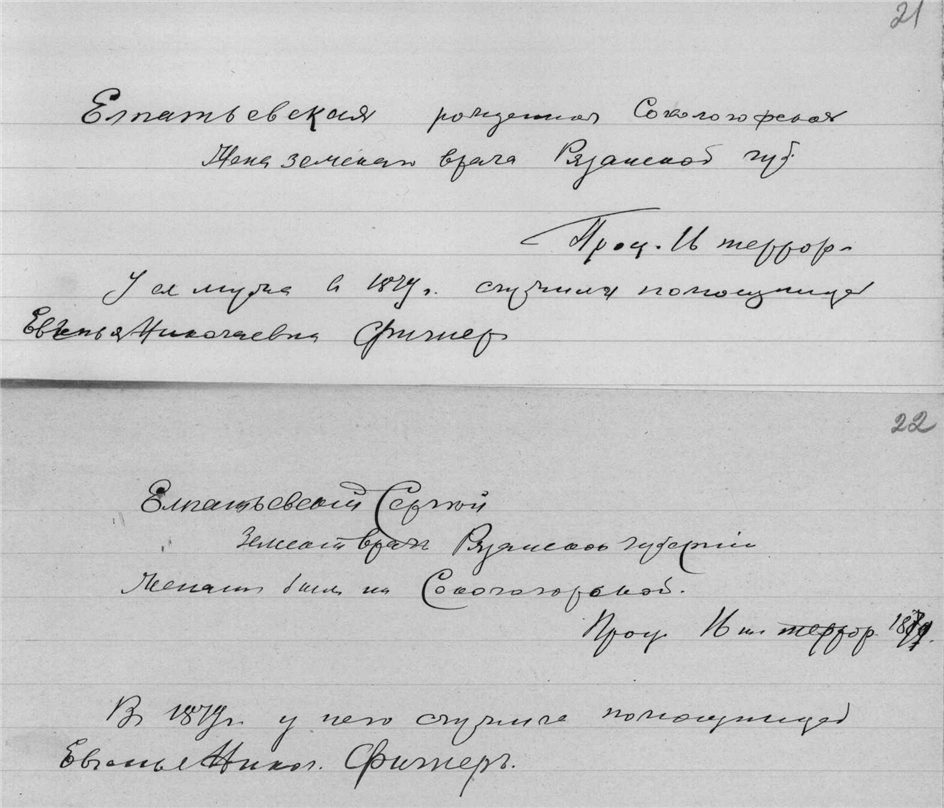 21
Елпатьевская рожденная Сокологорская
Жена земскаго врача Рязанской губ.
Проц. 16 террор.
У ея мужа в 1879 г. служила помощницей
Евгенья Николаевна Фигнер
22
Елпатьевский Сергей
Земский врач Рязанской губернии
Женат был на Сокологорской.
Проц. 16 террор. 1879.
В 1879 г. у него служила помощницей
Евгенья Никол. Фигнеръ.